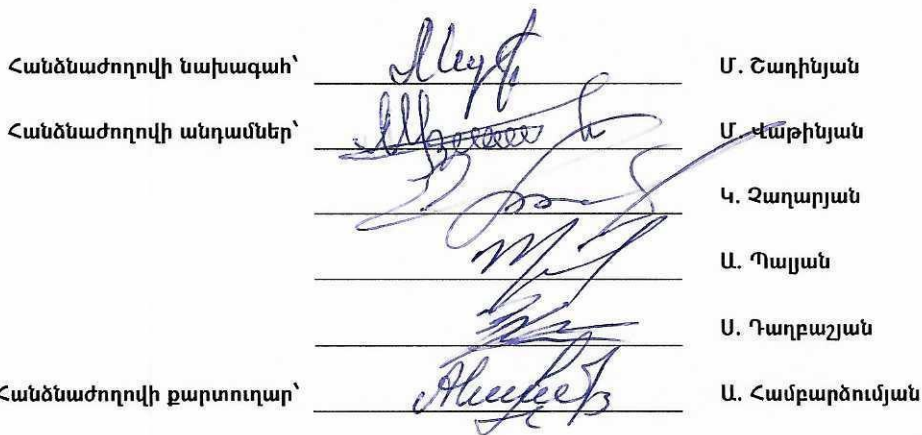 Հանձնաժողովի նախագահ՝ Մ. Շադինյան
Հանձնաժողովի անդամներ՝ Մ. Վաթինյան
Կ. Չաղարյան
Ա. Պալյան
Ս. Դաղբաշյան
Հանձնաժողովի քարտուղար՝ Ա. Համբարձումյան